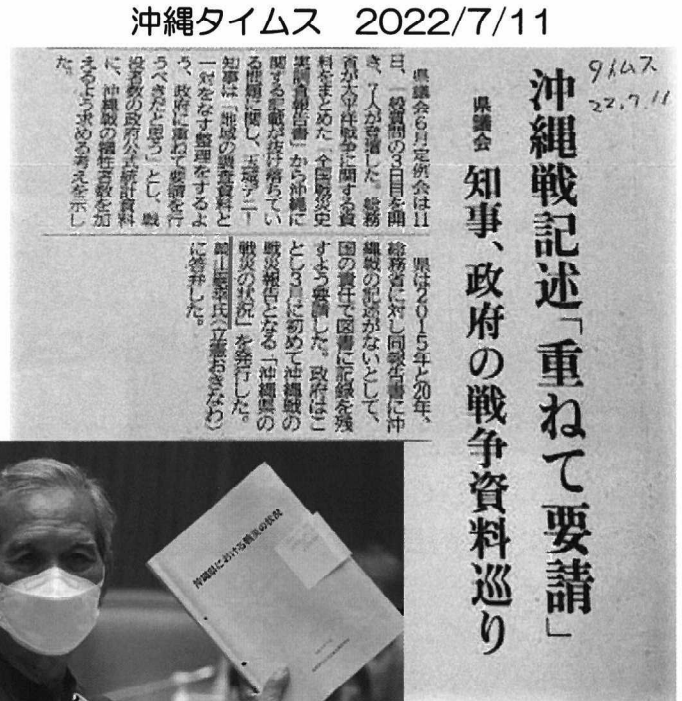 沖縄タイムス 2022/7/11
タイムス
22.7.11
沖縄戦記述「重ねて要請」
県議会 知事、政府の戦争資料巡り
県議会6月定例会は11
日、一般質問の3日目を開
き、7人が登壇した。総務
省が太平洋戦争に関する資
料をまとめた「全国戦災史
実調査報告書」から沖縄に
関する記載が抜け落ちてい
る問題に関し、玉城デニー
知事は「地域の調査資料と
一対をなす整理をするよ
う、政府に重ねて要請を行
うべきだと思う」とし、戦
没者数の政府公式統計資料
に、沖縄戦の犠牲者数を加
えるよう求める考えを示し
た。
県は2015年と20年、
総務省に対し同報告書に沖
縄戦の記述がないとして、
国の責任で図書に記録を残
すよう要請した。政府はこ
とし3月に初めて沖縄戦の
戦災報告となる「沖縄県の
戦災の状況」を発行した。
氏(立憲おきなわ)
に答弁した。
沖縄県における戦災の状況